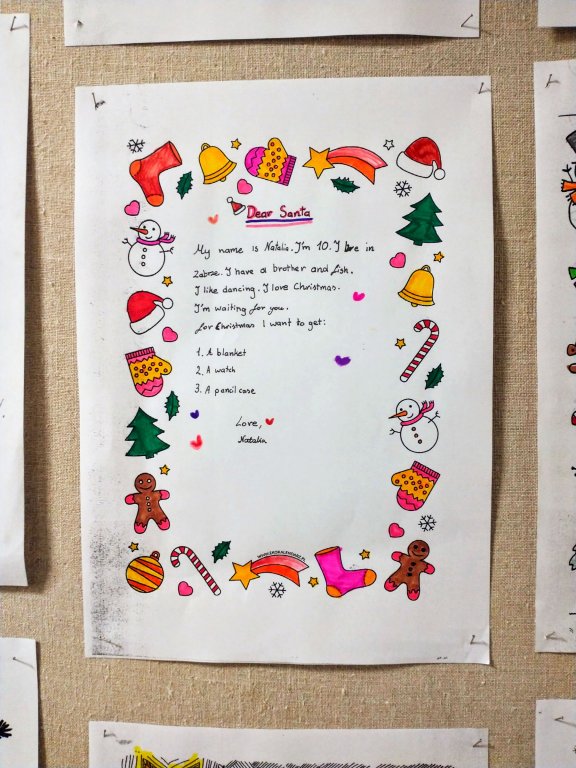 Dear Santa
My name is Natalia. I'm 10. I live in
Zabrze. I have a brother and fish.
I like dancing. I love Christmas.
I'm waiting for you.
for Christmas I want to get:
1. A blanket
2. A watch
3. A pencil case
Love,
Natalia